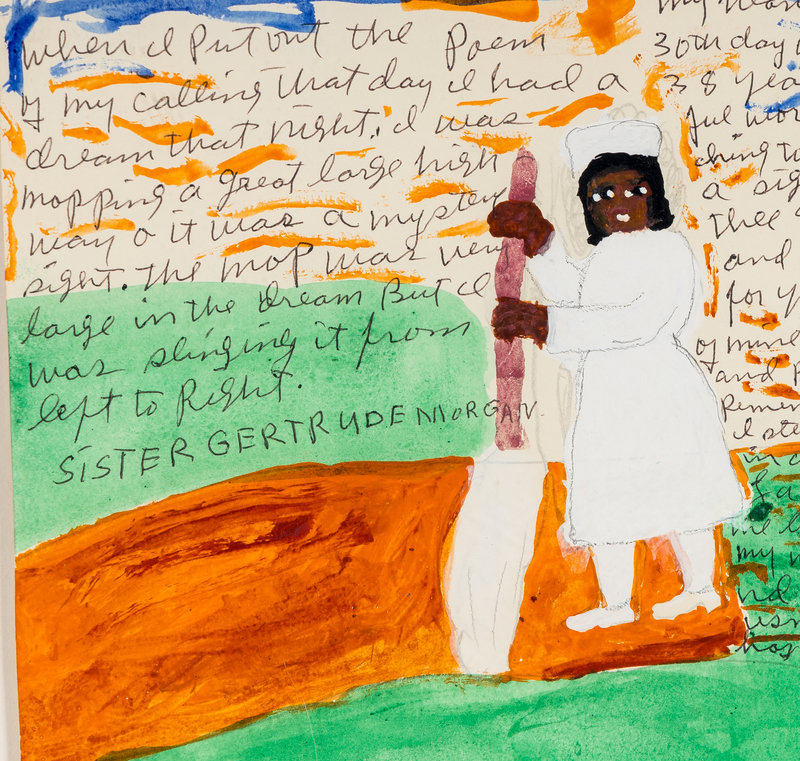 when I Put out the Poem
of my calling that day I had a
dream that night, I was
mopping a great large high
way o it was a mystery
sight. the mop was very
large in the dream But I
was slinging it from
left to Right.
SISTER GERTRUDE MORGAN.
my
30th day
38 year
ful wor
ching to
a sig
thee
and
for y
of mine
and
Remem
I ste
in
me
my
and